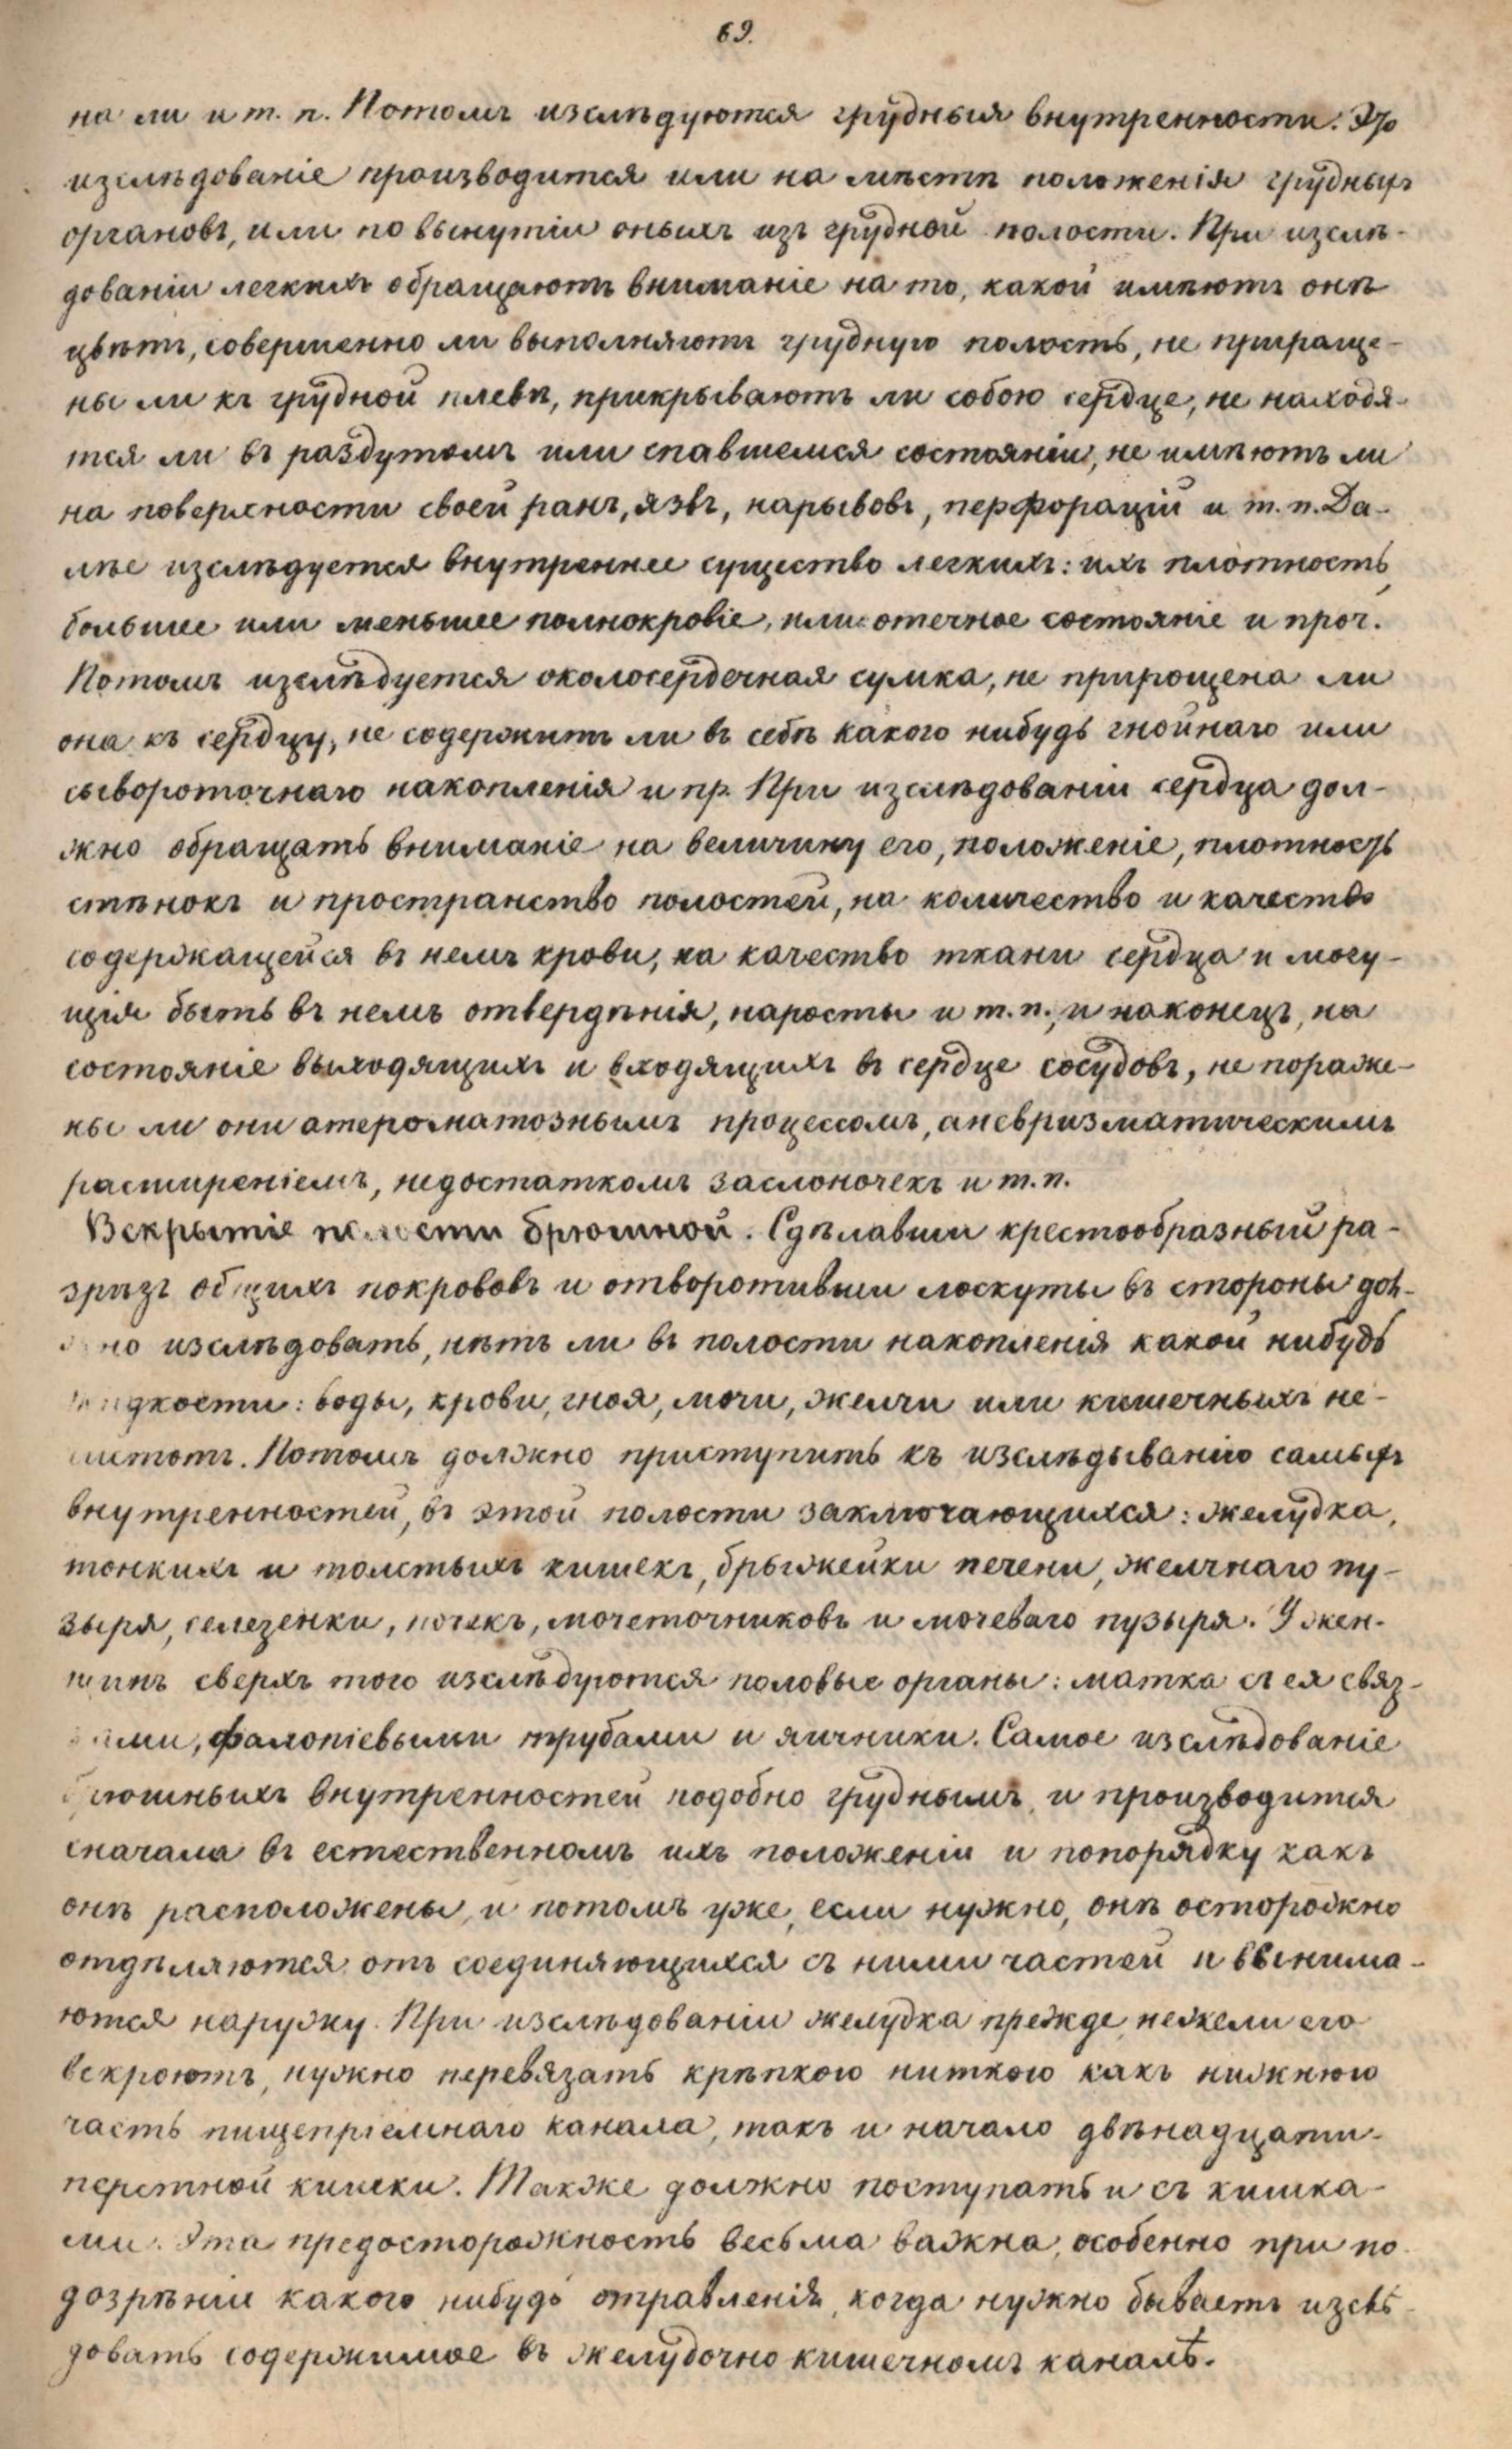 69.
на ли и т. п. Потомъ изслѣдуются грудныя внутренности. Это
изслѣдованіе производится или на мѣстѣ положенія грудныхъ
органовъ, или по вынутіи оныхъ изъ грудной полости. При изслѣ-
дованіи легкихъ обращаютъ вниманіе на то, какой имѣютъ онѣ
цвѣтъ, совершенно ли выполняютъ грудную полость, не прираще-
ны ли къ грудной плевѣ, прикрываютъ ли собою сердце, не находя-
тся ли въ раздутомъ или спавшемся состояніи, не имѣютъ ли
на поверхности своей ранъ, язвъ, нарывовъ, перфорацій и т. п. Да-
лѣе изслѣдуется внутреннее существо легкихъ: ихъ плотность,
большее или меньшее полнокровіе, или отечное состояніе и проч.
Потомъ изслѣдуется околосердечная сумка, не прирощена ли
она къ сердцу, не содержитъ ли въ себѣ какого нибудь гнойнаго или
сывороточнаго накопленія и пр. При изслѣдованіи сердца дол-
жно обращать вниманіе на величину его, положеніе, плотность
стѣнокъ и пространство полостей, на количество и качество
содержащейся въ немъ крови, на качество ткани сердца и могу-
щія быть въ немъ отвердѣнія, наросты и т. п., и наконецъ, на
состояніе выходящихъ и входящихъ въ сердце сосудовъ, не пораже-
ны ли они атероматознымъ процессомъ, аневризматическимъ
расширеніемъ, недостаткомъ заслоночекъ и т. п.
Вскрытіе полости брюшной. Сдѣлавши крестообразный ра-
зрѣзъ общихъ покрововъ и отворотивши лоскуты въ стороны дол-
жно изслѣдовать, нѣтъ ли въ полости накопленія какой нибудь
жидкости: воды, крови, гноя, мочи, желчи или кишечныхъ не-
чистотъ. Потомъ должно приступить къ изслѣдыванію самыхъ
внутренностей, въ этой полости заключающихся: желудка,
тонкихъ и толстыхъ кишекъ, брыжейки печени, желчнаго пу-
зыря, селезенки, почекъ, мочеточниковъ и мочеваго пузыря. У жен-
щинъ сверхъ того изслѣдуются половые органы: матка съ ея связ-
ками, фалопіевыми трубами и яичники. Самое изслѣдованіе
брюшныхъ внутренностей подобно груднымъ, и производится
сначала въ естественномъ ихъ положеніи и попорядку какъ
онѣ расположены, и потомъ уже, если нужно, онѣ осторожно
отдѣляются отъ соединяющихся съ ними частей и вынима-
ются наружу. При изслѣдованіи желудка прежде, нежели его
вскроютъ, нужно перевязать крѣпкою ниткою какъ нижнюю
часть пищепріемнаго канала, такъ и начало двѣнадцати-
перстной кишки. Также должно поступать и съ кишка-
ми. Эта предосторожность весьма важна, особенно при по
дозрѣніи какого нибудь отравленія, когда нужно бываетъ изслѣ-
довать содержимое въ желудочно кишечномъ каналѣ.